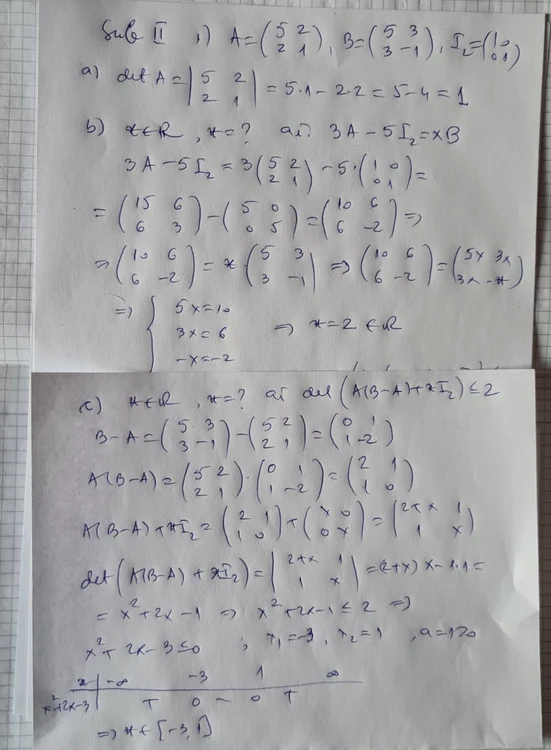 Sub II 1) A=(5 2 / 2 1), B=(5 3 / 3 -1), I₂=(1 0 / 0 1)
a) det A = |5 2 / 2 1| = 5·1-2·2=5-4=1
b) x∈R, x=? aî 3A-5I₂=xB
3A-5I₂=3(5 2 / 2 1)-5·(1 0 / 0 1)=
=(15 6 / 6 3)-(5 0 / 0 5)=(10 6 / 6 -2)⇒
⇒(10 6 / 6 -2)=x(5 3 / 3 -1)⇒(10 6 / 6 -2)=(5x 3x / 3x -x)
⇒{5x=10
3x=6 ⇒ x=2∈R
-x=-2
c) x∈R, x=? aî det(A(B-A)+xI₂)≤2
B-A=(5 3 / 3 -1)-(5 2 / 2 1)=(0 1 / 1 -2)
A(B-A)=(5 2 / 2 1)·(0 1 / 1 -2)=(2 1 / 1 0)
A(B-A)+xI₂=(2 1 / 1 0)+(x 0 / 0 x)=(2+x 1 / 1 x)
det(A(B-A)+xI₂)=|2+x 1 / 1 x|=(2+x)x-1·1=
=x²+2x-1 ⇒ x²+2x-1≤2 ⇒
x²+2x-3≤0 ; x₁=-3, x₂=1, a=1>0
x | -∞ -3 1 ∞
x²+2x-3 | + 0 - 0 +
⇒ x∈[-3,1]